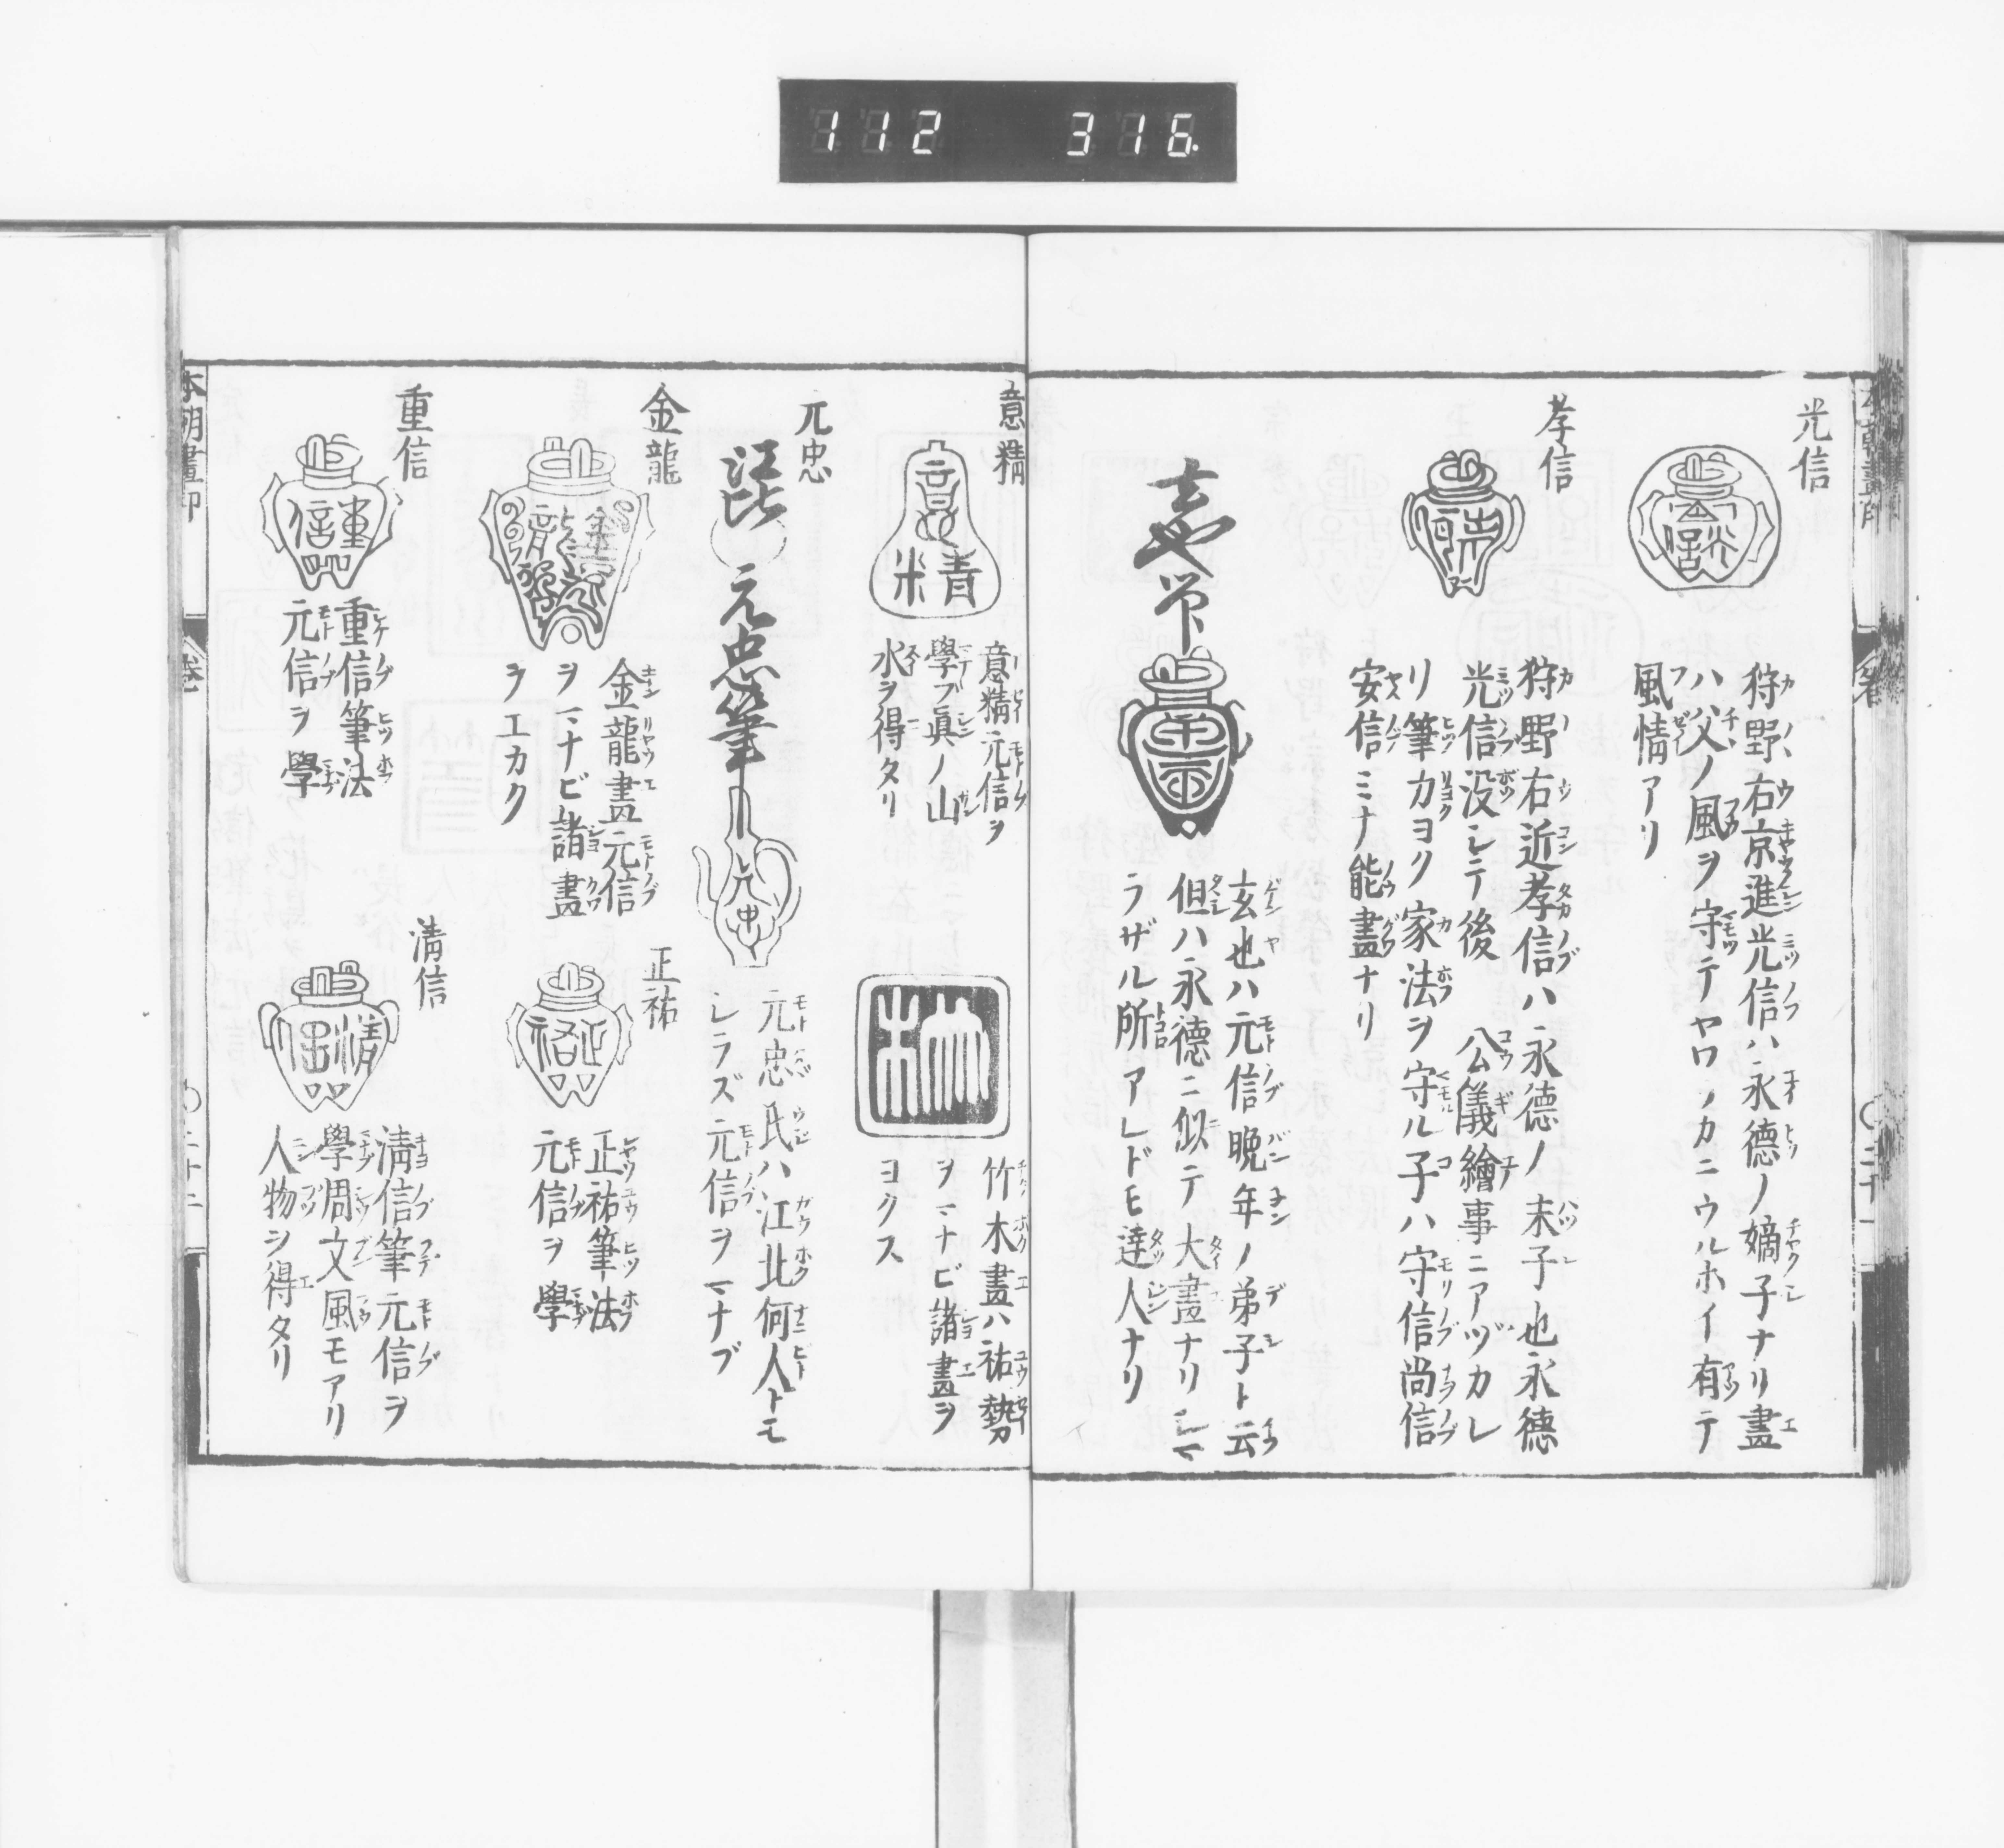 112 316
光信
狩野右京進光信ハ永德ノ嫡子ナリ畫
ハ父ノ風ヲ守テヤワラカニウルホイ有テ
風情アリ
孝信
狩野右近孝信ハ永德ノ末子也永德
光信没シテ後 公儀繪事ニアヅカレ
リ筆力ヨク家法ヲ守ル子ハ守信尚信
安信ミナ能畫ナリ
玄也筆
玄也ハ元信晩年ノ弟子ト云
但ハ永德ニ似テ大畫ナリシマ
ラザル所アレドモ達人ナリ
意精
意精元信ヲ
學ブ眞ノ山
水ヲ得タリ
竹木畫ハ祐勢
ヲマナビ諸畫ヲ
ヨクス
元忠
江北
元忠筆
元忠氏ハ江北何人トモ
シラズ元信ヲマナブ
金龍
金龍畫元信
ヲマナビ諸畫
ヲエカク
正祐
正祐筆法
元信ヲ學
重信
重信筆法
元信ヲ學
淸信
淸信筆元信ヲ
學周文風モアリ
人物シ得タリ
本朝畫印
卷
〇二十二